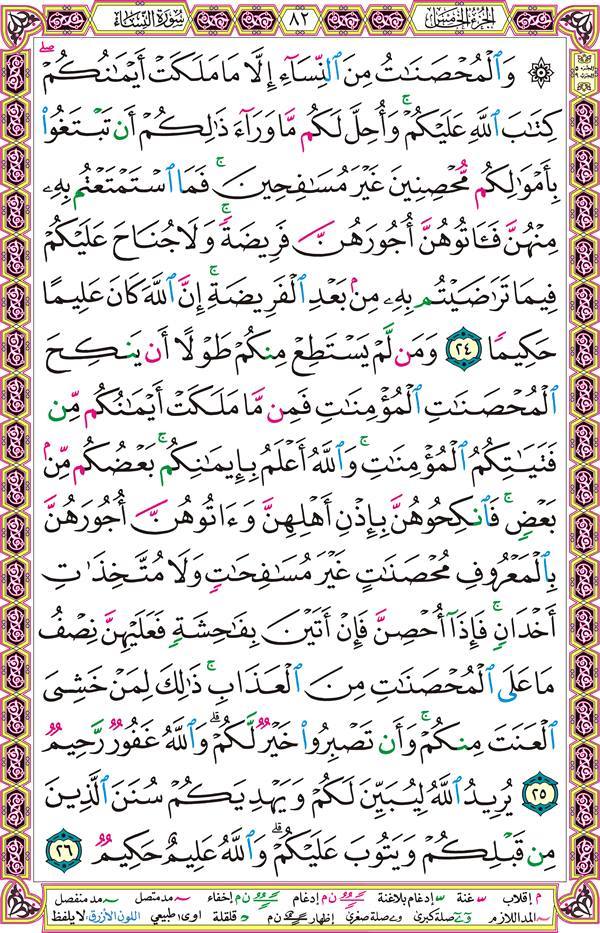 الجزء الخامس ٨٢ سورة النساء
وَٱلْمُحْصَنَاتُ مِنَ ٱلنِّسَآءِ إِلَّا مَا مَلَكَتْ أَيْمَانُكُمْ ۖ
كِتَابَ ٱللَّهِ عَلَيْكُمْ ۚ وَأُحِلَّ لَكُم مَّا وَرَآءَ ذَالِكُمْ أَن تَبْتَغُوا۟
بِأَمْوَالِكُم مُّحْصِنِينَ غَيْرَ مُسَافِحِينَ ۚ فَمَا ٱسْتَمْتَعْتُم بِهِۦ
مِنْهُنَّ فَـَٔاتُوهُنَّ أُجُورَهُنَّ فَرِيضَةً ۚ وَلَا جُنَاحَ عَلَيْكُمْ
فِيمَا تَرَاضَيْتُم بِهِۦ مِنۢ بَعْدِ ٱلْفَرِيضَةِ ۚ إِنَّ ٱللَّهَ كَانَ عَلِيمًا
حَكِيمًا ٢٤ وَمَن لَّمْ يَسْتَطِعْ مِنكُمْ طَوْلًا أَن يَنكِحَ
ٱلْمُحْصَنَاتِ ٱلْمُؤْمِنَاتِ فَمِن مَّا مَلَكَتْ أَيْمَانُكُم مِّن
فَتَيَاتِكُمُ ٱلْمُؤْمِنَاتِ ۚ وَٱللَّهُ أَعْلَمُ بِإِيمَانِكُم ۚ بَعْضُكُم مِّنۢ
بَعْضٍ ۚ فَٱنكِحُوهُنَّ بِإِذْنِ أَهْلِهِنَّ وَءَاتُوهُنَّ أُجُورَهُنَّ
بِٱلْمَعْرُوفِ مُحْصَنَاتٍ غَيْرَ مُسَافِحَاتٍ وَلَا مُتَّخِذَاتِ
أَخْدَانٍ ۚ فَإِذَآ أُحْصِنَّ فَإِنْ أَتَيْنَ بِفَاحِشَةٍ فَعَلَيْهِنَّ نِصْفُ
مَا عَلَى ٱلْمُحْصَنَاتِ مِنَ ٱلْعَذَابِ ۚ ذَالِكَ لِمَنْ خَشِىَ
ٱلْعَنَتَ مِنكُمْ ۚ وَأَن تَصْبِرُوا۟ خَيْرٌ لَّكُمْ ۗ وَٱللَّهُ غَفُورٌ رَّحِيمٌ
٢٥ يُرِيدُ ٱللَّهُ لِيُبَيِّنَ لَكُمْ وَيَهْدِيَكُمْ سُنَنَ ٱلَّذِينَ
مِن قَبْلِكُمْ وَيَتُوبَ عَلَيْكُمْ ۗ وَٱللَّهُ عَلِيمٌ حَكِيمٌ ٢٦
م إقلاب غنة إدغام بلاغنة ن م إدغام ن م إخفاء مد متصل مد منفصل
المد اللازم صلة كبرى صلة صغرى إظهار ن م قلقلة اوى طبيعي اللون الأزرق: لا يلفظ